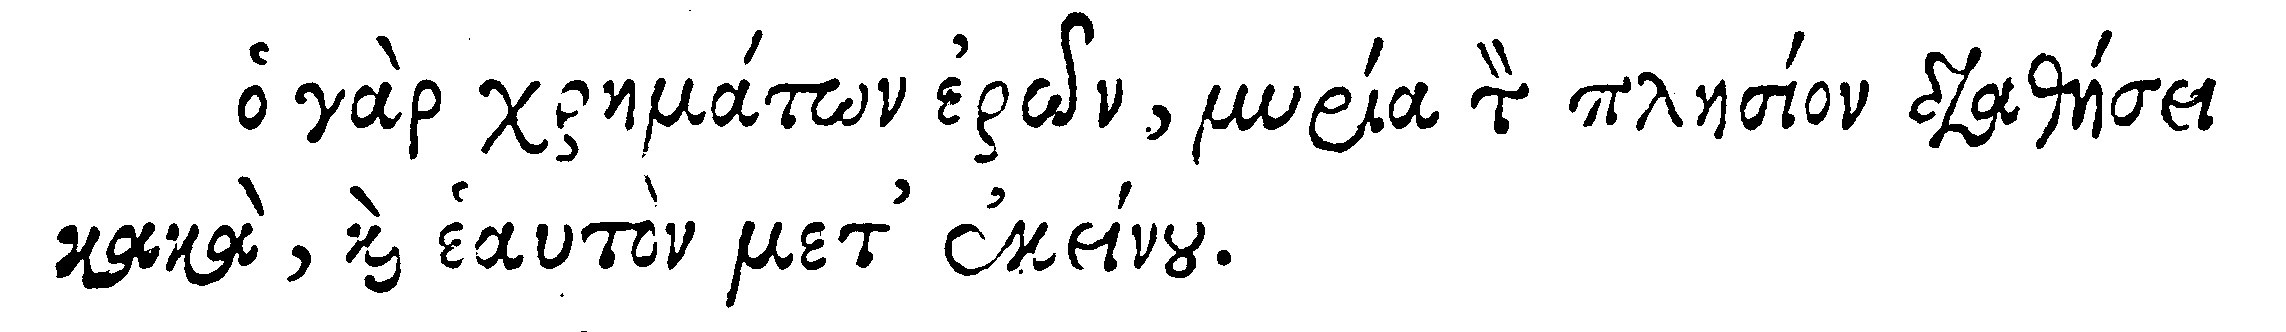 ὁ γὰρ χρημάτων ἐρῶν, μυρία τὸν πλησίον διαθήσει
κακὰ, καὶ ἑαυτὸν μετ᾽ ἐκείνου.